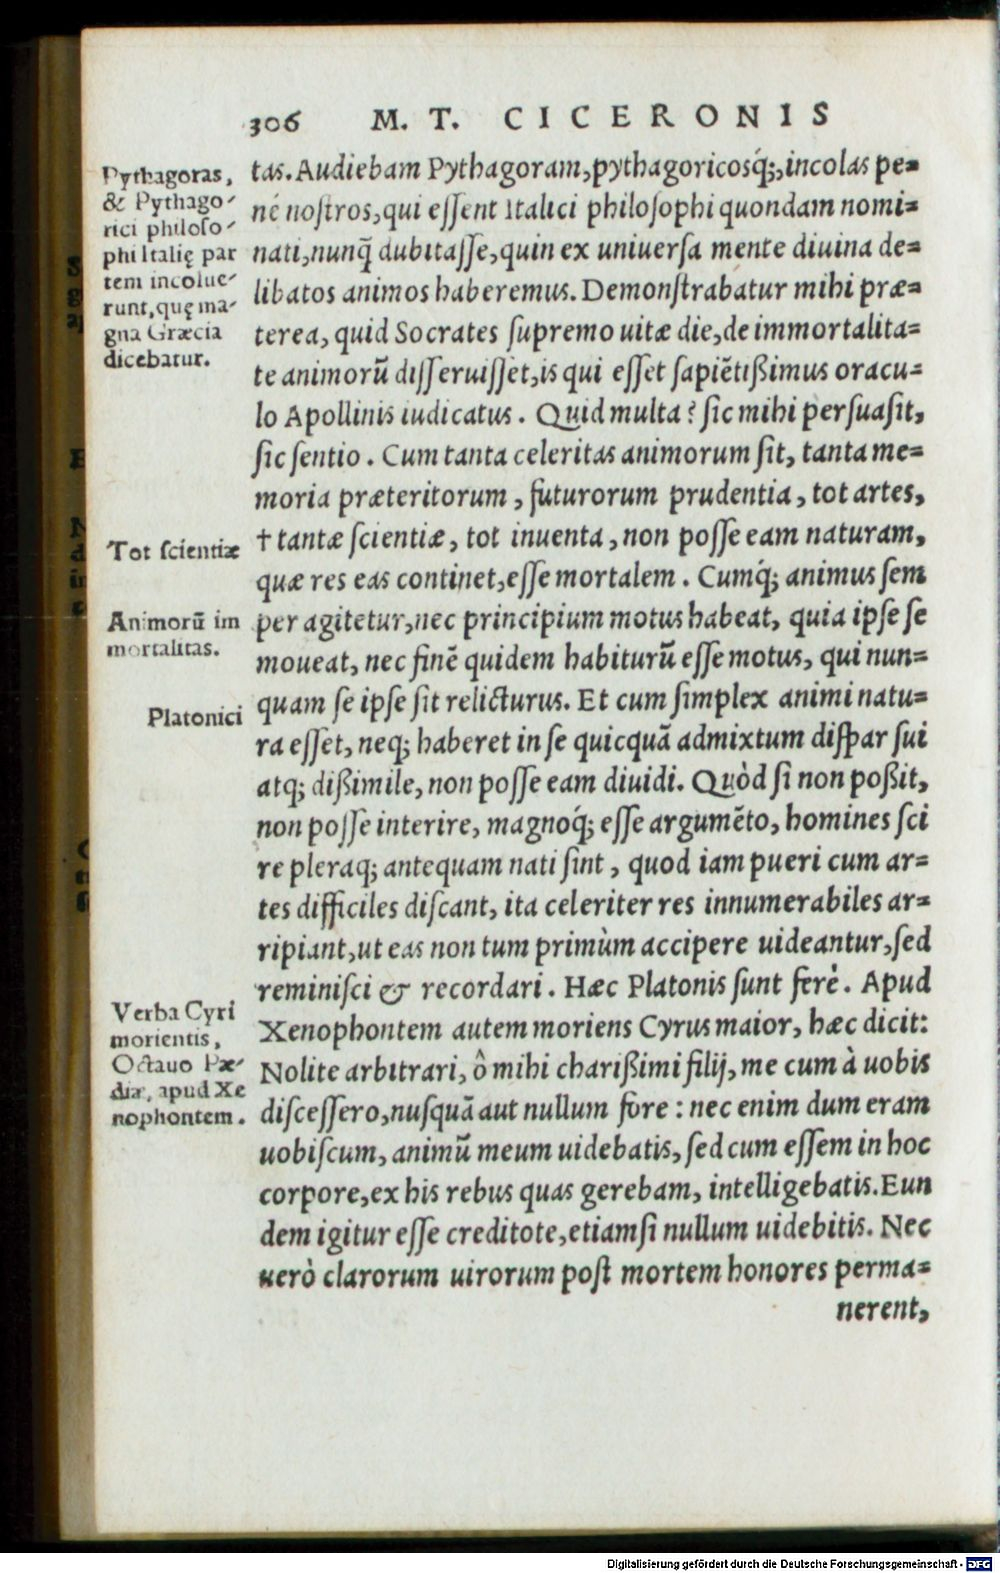 306 M. T. CICERONIS
Pythagoras,
& Pythago-
rici philoso-
phi Italię par
tem incolue-
runt, quę ma-
gna Græcia
dicebatur.
tas. Audiebam Pythagoram, pythagoricosq́;, incolas pe=
né nostros, qui essent Italici philosophi quondam nomi=
nati, nunq̃ dubitasse, quin ex uniuersa mente diuina de=
libatos animos haberemus. Demonstrabatur mihi præ=
terea, quid Socrates supremo uitæ die, de immortalita=
te animorũ disseruisset, is qui esset sapiẽtißimus oracu=
lo Apollinis iudicatus. Quid multa? sic mihi persuasit,
sic sentio. Cum tanta celeritas animorum sit, tanta me=
moria præteritorum, futurorum prudentia, tot artes,
Tot scientiæ
† tantæ scientiæ, tot inuenta, non posse eam naturam,
quæ res eas continet, esse mortalem. Cumq́; animus sem
Animorũ im
mortalitas.
per agitetur, nec principium motus habeat, quia ipse se
moueat, nec finẽ quidem habiturũ esse motus, qui nun=
Platonici
quam se ipse sit relicturus. Et cum simplex animi natu=
ra esset, neq; haberet in se quicquã admixtum dispar sui
atq; dißimile, non posse eam diuidi. Quòd si non poßit,
non posse interire, magnoq́; esse argumẽto, homines sci
re pleraq; antequam nati sint, quod iam pueri cum ar=
tes difficiles discant, ita celeriter res innumerabiles ar=
ripiant, ut eas non tum primùm accipere uideantur, sed
reminisci & recordari. Hæc Platonis sunt ferè. Apud
Verba Cyri
morientis,
Octauo Pæ-
diæ, apud Xe
nophontem.
Xenophontem autem moriens Cyrus maior, hæc dicit:
Nolite arbitrari, ô mihi charißimi filij, me cum à uobis
discessero, nusquã aut nullum fore: nec enim dum eram
uobiscum, animũ meum uidebatis, sed cum essem in hoc
corpore, ex his rebus quas gerebam, intelligebatis. Eun
dem igitur esse creditote, etiamsi nullum uidebitis. Nec
uerò clarorum uirorum post mortem honores perma=
nerent,
Digitalisierung gefördert durch die Deutsche Forschungsgemeinschaft - DFG